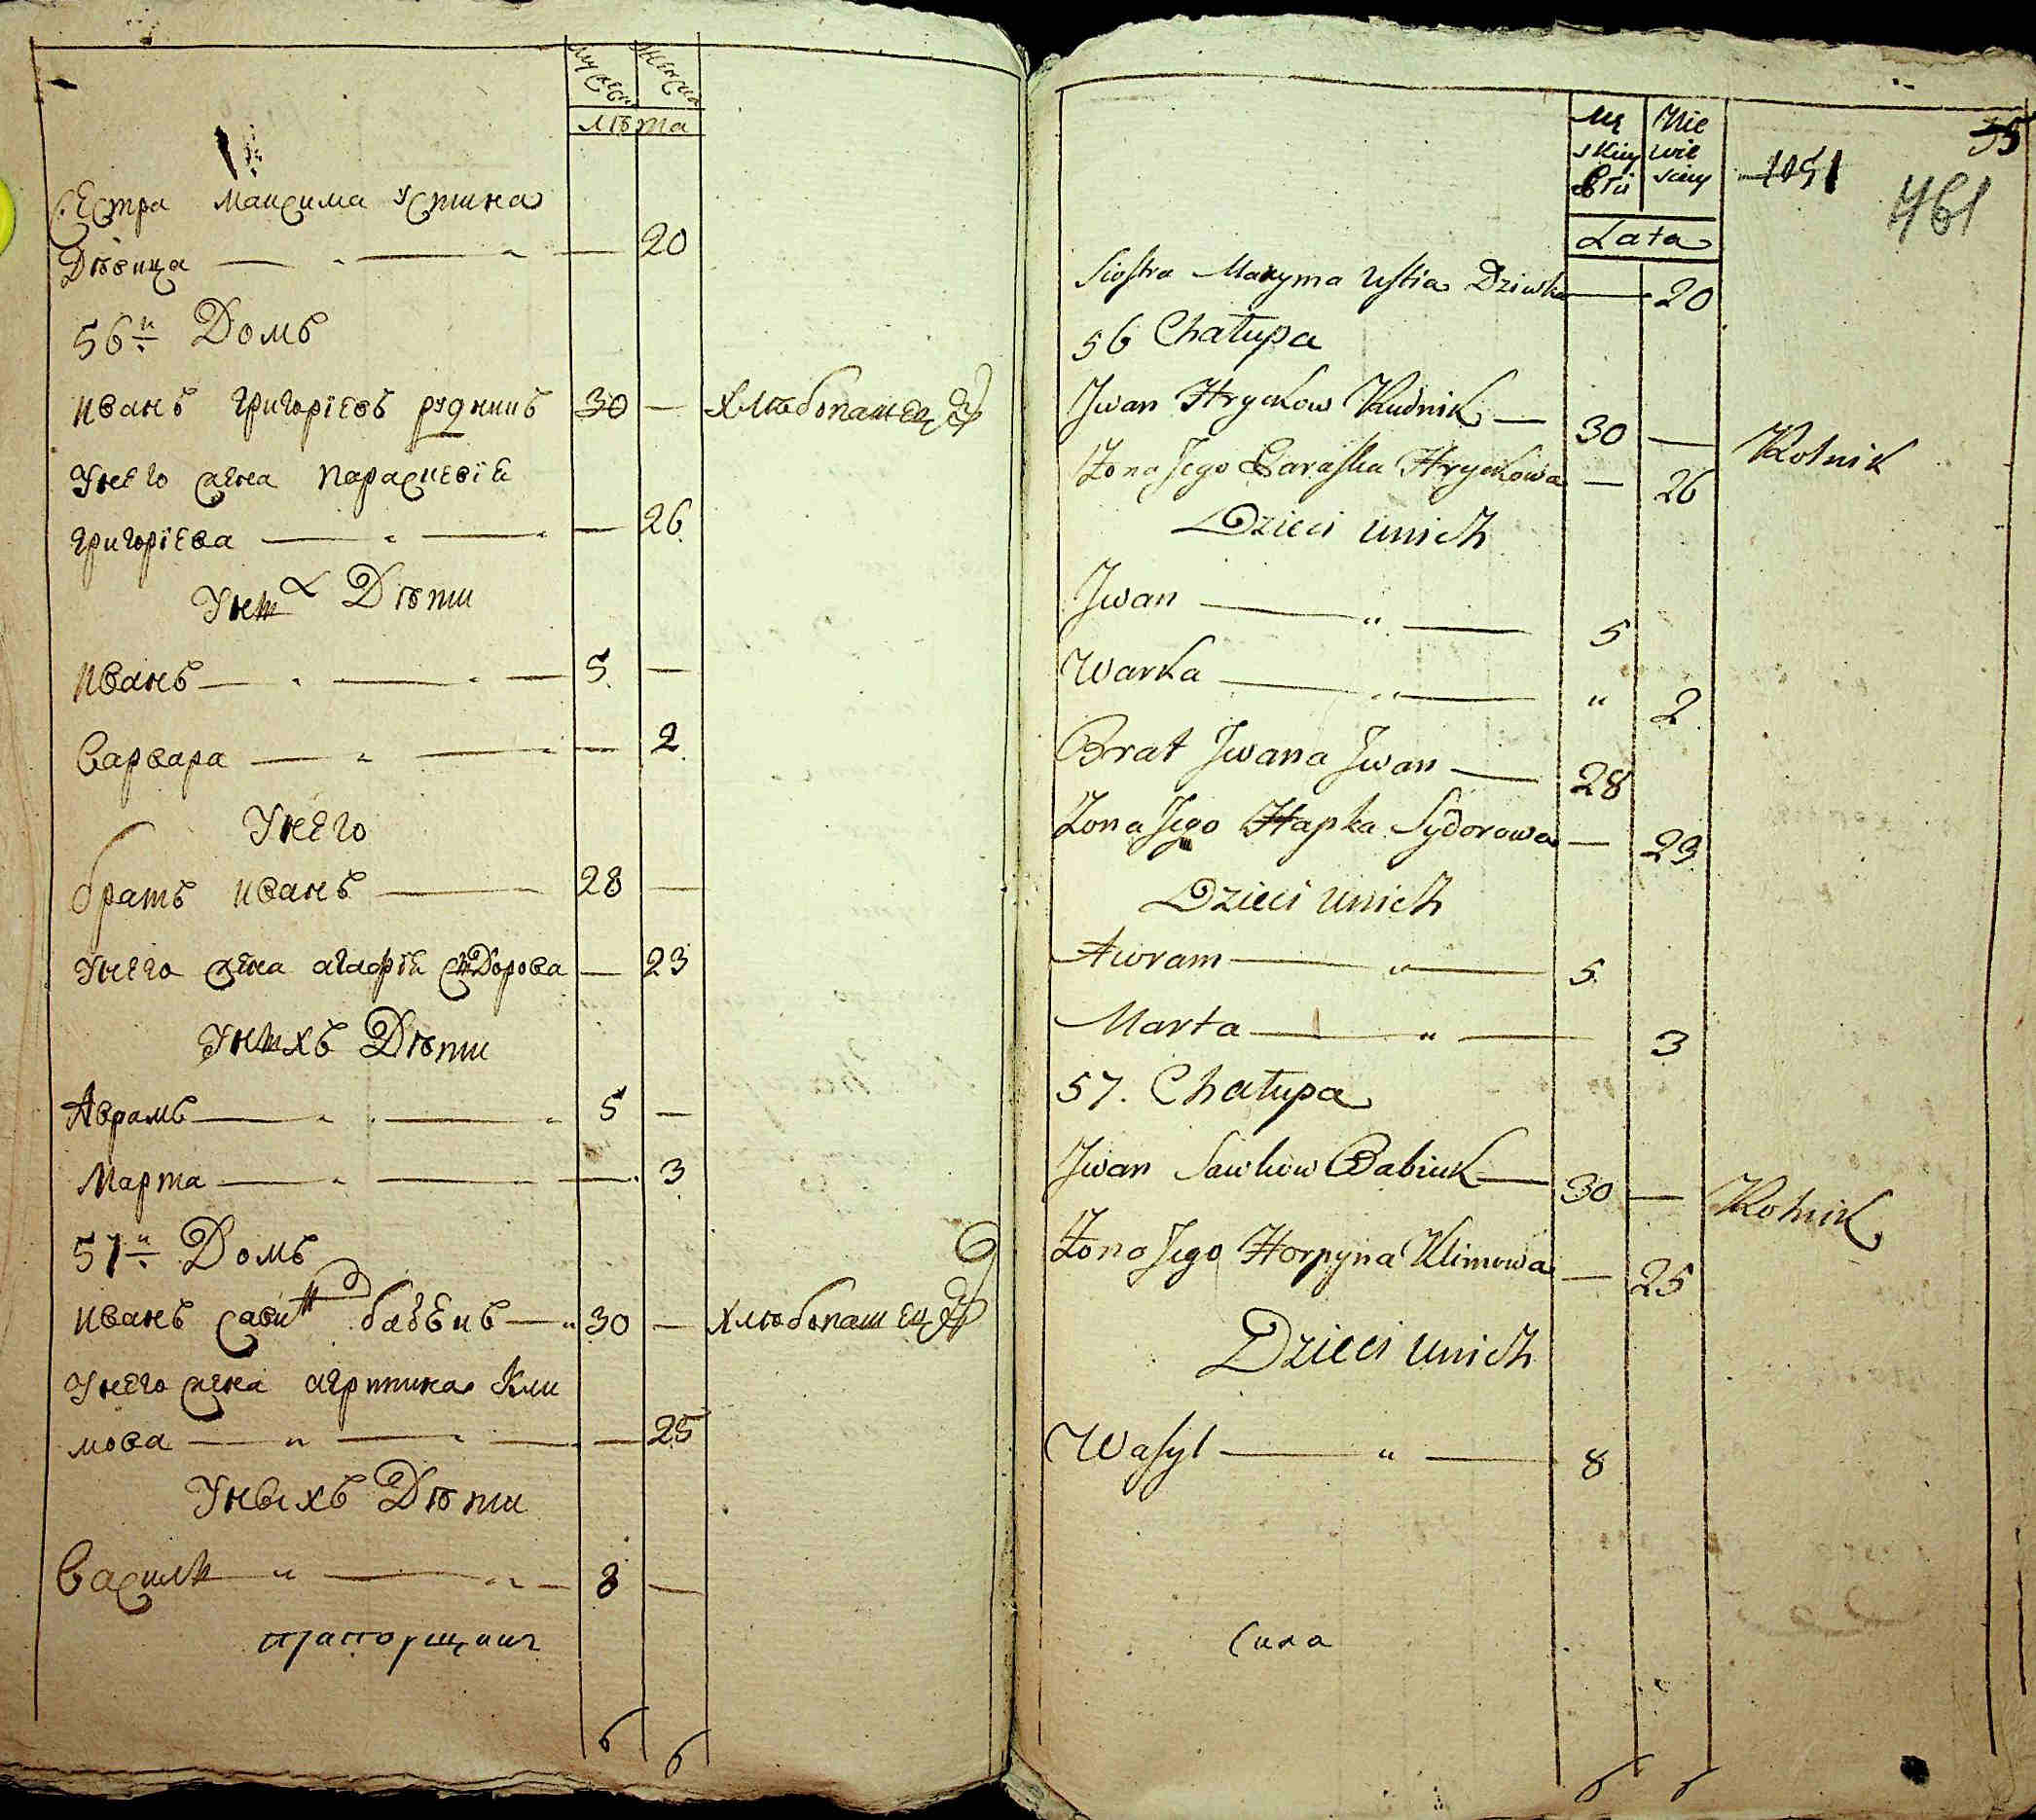 мужеска женска
лѣта
сестра максима устина
Дѣвица — — — 20
56й Домъ
иванъ григорїевъ рудникъ 30 — хлѣбопашецъ
унего жена параскевїя
григорїева — — — 26
Дѣти
иванъ — — — 5 —
варвара — — — 2
унего
братъ иванъ — 28 —
унего жена агафїя сидорова — 23
унихъ Дѣти
Аврамъ — — 5 —
марта — — — 3
57й Домъ
иванъ бабѣкъ — 30 — хлѣбопашецъ
унего жена агрипина кли
мова — — — — 25
уныхъ Дѣти
василь — — 8 —
прапорщикъ
6 6
55
1051
461
Lata
Siostra Maxyma Ustia Dziwka — 20
56 Chałupa
Jwan Hryckow Rudnik — 30 — Rolnik
Żona Jego Paraska Hryckowa — 26
Dzieci unich
Jwan — " — 5
Warka — " — " 2
Brat Jwana Jwan — 28
Żona Jego Hapka Sydorowa — 23
Dzieci unich
Awram — " — 5
Marta — " — 3
57. Chałupa
Jwan Sawkow Babiuk — 30 — Rolnik
Żona Jego Horpyna Klimowa — 25
Dzieci unich
Wasyl — " — 8
Сила
6 6